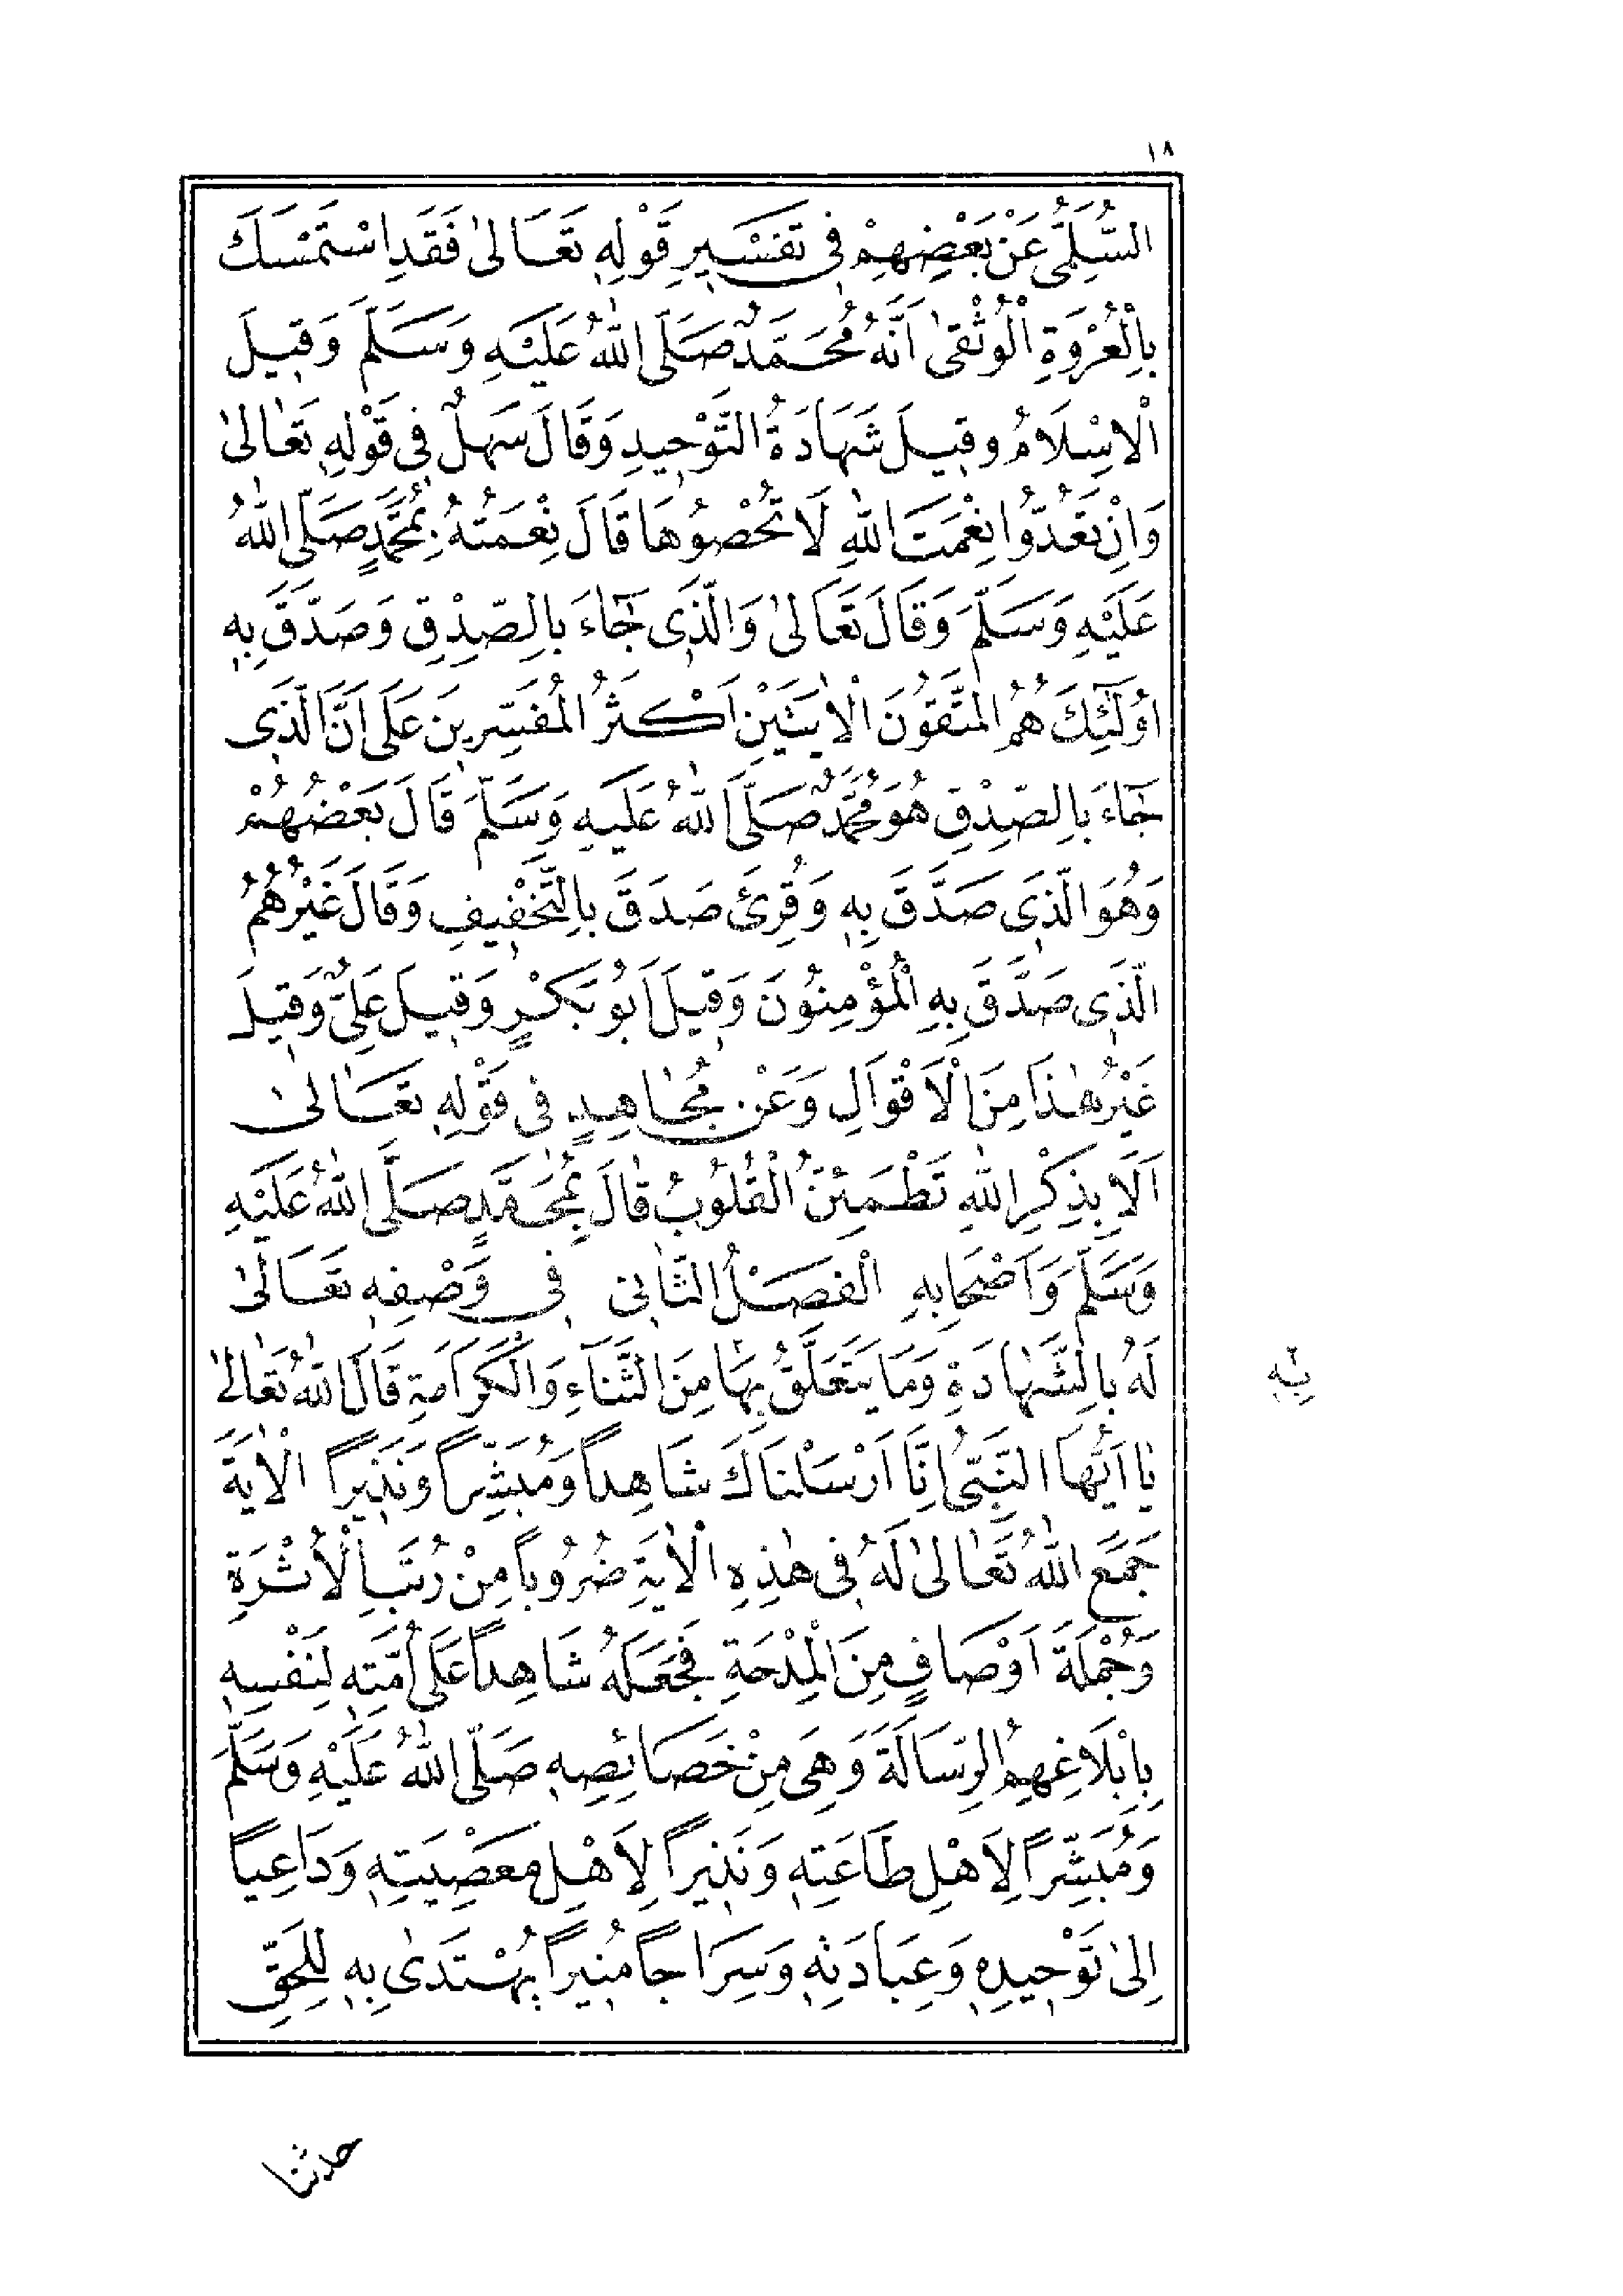 ١٨
السُّلَمِيُّ عَنْ بَعْضِهِمْ فِي تَفْسِيرِ قَوْلِهِ تَعَالىٰ فَقَدِ اسْتَمْسَكَ
بِالْعُرْوَةِ الْوُثْقىٰ اَنَّهُ مُحَمَّدٌ صَلَّى اللّٰهُ عَلَيْهِ وَسَلَّمَ وَقِيلَ
الْاِسْلَامُ وَقِيلَ شَهَادَةُ التَّوْحِيدِ وَقَالَ سَهْلٌ فِي قَوْلِهِ تَعَالىٰ
وَاِنْ تَعُدُّوا نِعْمَتَ اللّٰهِ لَا تُحْصُوهَا قَالَ نِعْمَتُهُ بِمُحَمَّدٍ صَلَّى اللّٰهُ
عَلَيْهِ وَسَلَّمَ وَقَالَ تَعَالىٰ وَالَّذِي جَٓاءَ بِالصِّدْقِ وَصَدَّقَ بِهِ
اُولٰٓئِكَ هُمُ الْمُتَّقُونَ الْاٰيَتَيْنِ اَكْثَرُ الْمُفَسِّرِينَ عَلَى اَنَّ الَّذِي
جَٓاءَ بِالصِّدْقِ هُوَ مُحَمَّدٌ صَلَّى اللّٰهُ عَلَيْهِ وَسَلَّمَ قَالَ بَعْضُهُمْ
وَهُوَ الَّذِي صَدَّقَ بِهِ وَقُرِئَ صَدَقَ بِالتَّخْفِيفِ وَقَالَ غَيْرُهُمُ
الَّذِي صَدَّقَ بِهِ الْمُؤْمِنُونَ وَقِيلَ اَبُو بَكْرٍ وَقِيلَ عَلِيٌّ وَقِيلَ
غَيْرُ هٰذَا مِنَ الْاَقْوَالِ وَعَنْ مُجَاهِدٍ فِي قَوْلِهِ تَعَالىٰ
اَلَا بِذِكْرِ اللّٰهِ تَطْمَئِنُّ الْقُلُوبُ قَالَ بِمُحَمَّدٍ صَلَّى اللّٰهُ عَلَيْهِ
وَسَلَّمَ وَاَصْحَابِهِ الْفَصْلُ الثَّانِي فِي وَصْفِهِ تَعَالىٰ
لَهُ بِالشَّهَادَةِ وَمَا يَتَعَلَّقُ بِهَا مِنَ الثَّنَٓاءِ وَالْكَرَامَةِ قَالَ اللّٰهُ تَعَالىٰ
يَا اَيُّهَا النَّبِيُّ اِنَّا اَرْسَلْنَاكَ شَاهِداً وَمُبَشِّراً وَنَذِيراً الْاٰيَةَ
جَمَعَ اللّٰهُ تَعَالىٰ لَهُ فِي هٰذِهِ الْاٰيَةِ ضُرُوباً مِنْ رُتَبِ الْاُثْرَةِ
وَجُمْلَةَ اَوْصَافٍ مِنَ الْمِدْحَةِ فَجَعَلَهُ شَاهِداً عَلَى اُمَّتِهِ لِنَفْسِهِ
بِاِبْلَاغِهِمُ الرِّسَالَةَ وَهِيَ مِنْ خَصَائِصِهِ صَلَّى اللّٰهُ عَلَيْهِ وَسَلَّمَ
وَمُبَشِّراً لِاَهْلِ طَاعَتِهِ وَنَذِيراً لِاَهْلِ مَعْصِيَتِهِ وَدَاعِياً
اِلىٰ تَوْحِيدِهِ وَعِبَادَتِهِ وَسِرَاجاً مُنِيراً يُهْتَدىٰ بِهِ لِلْحَقِّ
حدثنا